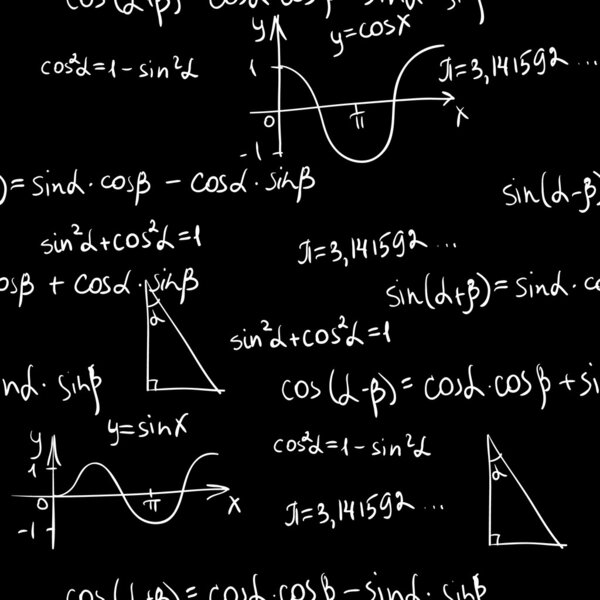 cos(α+β) = cosα cosβ - sinα · sinβ
y
y=cosx
cos²α=1-sin²α
1
π=3,141592...
0
π
x
-1
)=sinα·cosβ - cosα·sinβ
sin(α-β)
sin²α+cos²α=1
π=3,141592...
osβ + cosα·sinβ
sin(α+β)=sinα·co
α
sin²α+cos²α=1
nα·sinβ
cos(α-β)=cosα·cosβ+si
y=sinx
y
cos²α=1-sin²α
1
α
0
π
x
π=3,141592...
-1
cos(α+β)=cosα·cosβ-sinα·sinβ